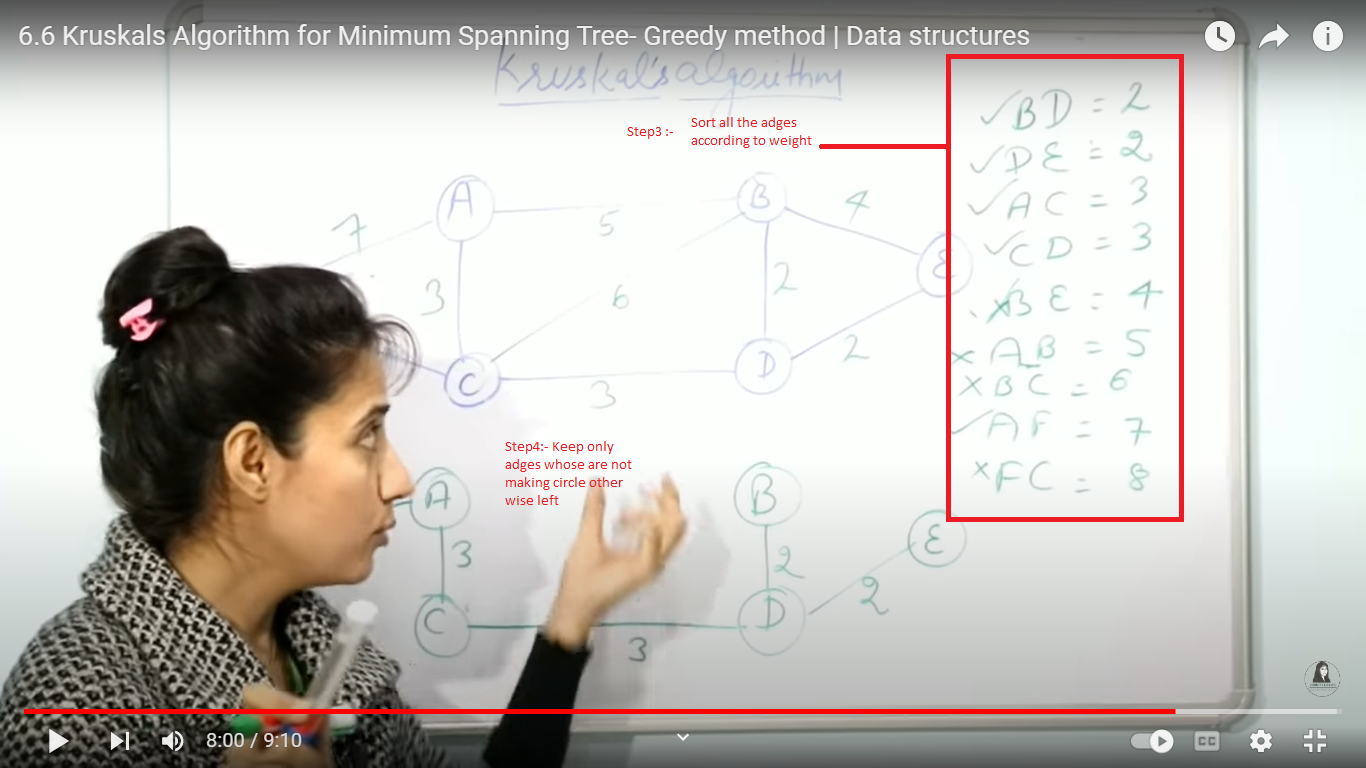 6.6 Kruskals Algorithm for Minimum Spanning Tree- Greedy method | Data structures
Kruskal's algorithm
Step3 :- Sort all the adges
according to weight
✓BD = 2
✓DE = 2
✓AC = 3
✓CD = 3
×BE = 4
×AB = 5
×BC = 6
✓AF = 7
×FC = 8
7
A
5
B
4
3
6
2
E
C
3
D
2
Step4:- Keep only
adges whose are not
making circle other
wise left
A
B
3
2
E
C
3
D
2
8:00 / 9:10
CC